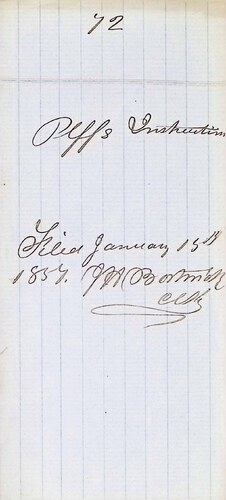 72
Plffs Instruction
Filed January 15th
1857. J H Bostwick
Clk